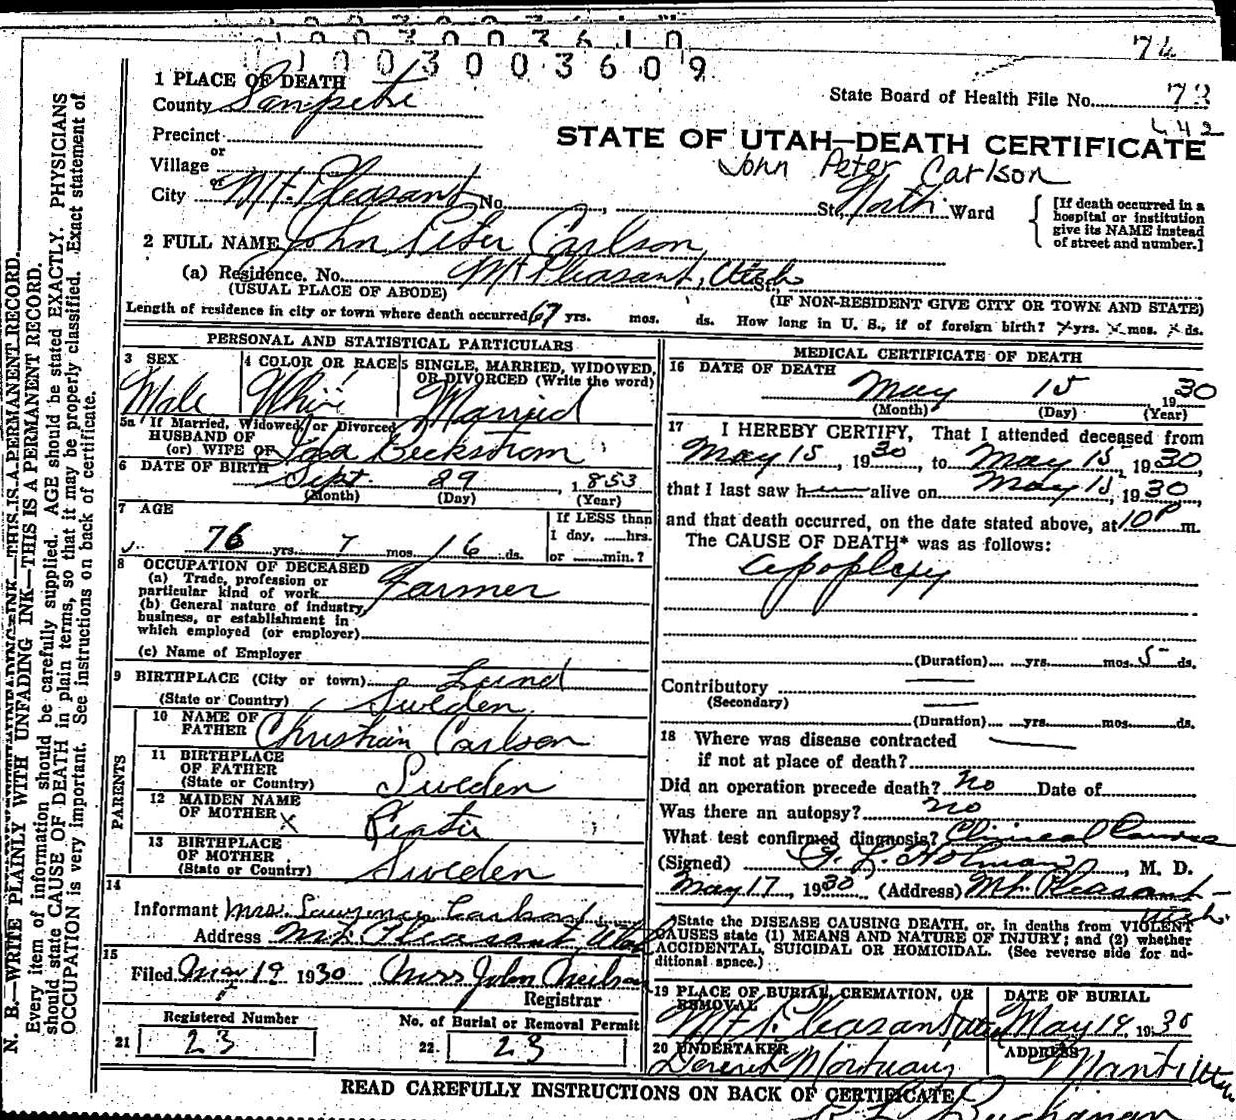 1003003610
1003003609
74
1 PLACE OF DEATH
County Sanpete
State Board of Health File No. 73
442
Precinct
or
Village
or
City Mt. Pleasant No. St. North Ward
STATE OF UTAH—DEATH CERTIFICATE
John Peter Carlson
[If death occurred in a
hospital or institution
give its NAME instead
of street and number.]
2 FULL NAME John Peter Carlson
(a) Residence. No. Mt Pleasant, Utah St.
(USUAL PLACE OF ABODE)
(IF NON-RESIDENT GIVE CITY OR TOWN AND STATE)
Length of residence in city or town where death occurred 67 yrs. mos. ds. How long in U. S., if of foreign birth? x yrs. x mos. x ds.
PERSONAL AND STATISTICAL PARTICULARS
3 SEX
Male
4 COLOR OR RACE
White
5 SINGLE, MARRIED, WIDOWED,
OR DIVORCED (Write the word)
Married
5a If Married, Widowed, or Divorced
HUSBAND OF
(or) WIFE OF Ida Beckstrom
6 DATE OF BIRTH
Sept. 29, 1853
(Month) (Day) (Year)
7 AGE
76 yrs. 7 mos. 16 ds.
If LESS than
1 day, hrs.
or min.?
8 OCCUPATION OF DECEASED
(a) Trade, profession or
particular kind of work Farmer
(b) General nature of industry,
business, or establishment in
which employed (or employer)
(c) Name of Employer
9 BIRTHPLACE (City or town) Lund
(State or Country) Sweden
PARENTS
10 NAME OF
FATHER Christian Carlson
11 BIRTHPLACE
OF FATHER
(State or Country) Sweden
12 MAIDEN NAME
OF MOTHER x
13 BIRTHPLACE
OF MOTHER
(State or Country) Sweden
14
Informant Mrs. Lawrence Carlson
Address Mt. Pleasant Utah
15
Filed May 19 1930 Miss John Neilson
Registrar
Registered Number
21 23
No. of Burial or Removal Permit
22 23
MEDICAL CERTIFICATE OF DEATH
16 DATE OF DEATH
May 15 1930
(Month) (Day) (Year)
17 I HEREBY CERTIFY, That I attended deceased from
May 15, 1930, to May 15, 1930,
that I last saw h alive on May 15, 1930
and that death occurred, on the date stated above, at 10 P m.
The CAUSE OF DEATH* was as follows:
Apoplexy
(Duration) yrs. mos. 5 ds.
Contributory
(Secondary)
(Duration) yrs. mos. ds.
18 Where was disease contracted
if not at place of death?
Did an operation precede death? No Date of
Was there an autopsy? no
What test confirmed diagnosis? Clinical
(Signed) Holman, M. D.
May 17, 1930 (Address) Mt. Pleasant
Utah.
*State the DISEASE CAUSING DEATH, or, in deaths from VIOLENT
CAUSES state (1) MEANS AND NATURE OF INJURY; and (2) whether
ACCIDENTAL, SUICIDAL OR HOMICIDAL. (See reverse side for ad-
ditional space.)
19 PLACE OF BURIAL, CREMATION, OR
REMOVAL
Mt. Pleasant, Utah
DATE OF BURIAL
May 18, 1930
20 UNDERTAKER
Mortuary
ADDRESS
Manti Utah
READ CAREFULLY INSTRUCTIONS ON BACK OF CERTIFICATE
Buchanan
N. B.—WRITE PLAINLY WITH UNFADING INK—THIS IS A PERMANENT RECORD.
Every item of information should be carefully supplied. AGE should be stated EXACTLY. PHYSICIANS
should state CAUSE OF DEATH in plain terms, so that it may be properly classified. Exact statement of
OCCUPATION is very important. See instructions on back of certificate.